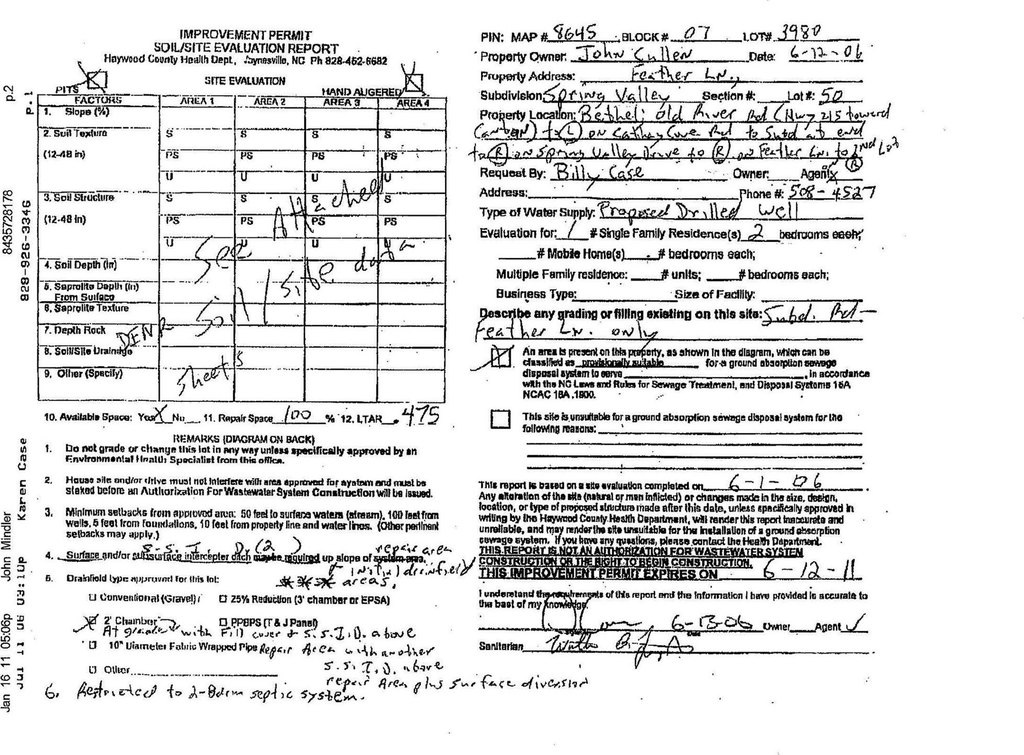 IMPROVEMENT PERMIT
SOIL/SITE EVALUATION REPORT
Haywood County Health Dept., Waynesville, NC Ph 828-452-6682
SITE EVALUATION
PITS HAND AUGERED
FACTORS AREA 1 AREA 2 AREA 3 AREA 4
1. Slope (%)
2. Soil Texture S S S S
(12-48 in) PS PS PS PS
U U U U
3. Soil Structure S S S S
(12-48 in) PS PS PS PS
U U U U
4. Soil Depth (in)
5. Saprolite Depth (in)
From Surface
6. Saprolite Texture
7. Depth Rock
8. Soil/Site Drainage
9. Other (Specify)
See Attached
DENR Soil/site data
sheets
10. Available Space: Yes X No 11. Repair Space 100 % 12. LTAR .475
REMARKS (DIAGRAM ON BACK)
1. Do not grade or change this lot in any way unless specifically approved by an
Environmental Health Specialist from this office.
2. House site and/or drive must not interfere with area approved for system and must be
staked before an Authorization For Wastewater System Construction will be issued.
3. Minimum setbacks from approved area: 50 feet to surface waters (stream), 100 feet from
wells, 5 feet from foundations, 10 feet from property line and water lines. (Other pertinent
setbacks may apply.)
S.S.I. Dr (2) repair area
4. Surface and/or subsurface intercepter ditch maybe required up slope of system area.
initial drainfield
areas.
5. Drainfield type approved for this lot:
Conventional (Gravel) 25% Reduction (3' chamber or EPSA)
2' Chamber PPBPS (T & J Panel)
At grade with Fill cover + S.S.I.D. above
10" Diameter Fabric Wrapped Pipe Repair Area with another
S.S.I.D. above
Other
repair Area plus surface diversion
6. Restricted to 2-Bdrm septic system.
PIN: MAP # 8645 BLOCK # 07 LOT# 3980
Property Owner: John Cullen Date: 6-12-06
Property Address: Feather Ln.,
Subdivision: Spring Valley Section #: Lot #: 50
Property Location: Bethel: Old River Rd (Hwy 215 toward
Canton) to (L) on Cathey Cove Rd to Subd at end
to (R) on Spring Valley Drive to (R) on Feather Ln. to 2nd Lot
(R)
Request By: Billy Case Owner: Agent: X
Address: Phone #: 508-4527
Type of Water Supply: Proposed Drilled Well
Evaluation for: 1 # Single Family Residence(s) 2 bedrooms each;
# Mobile Home(s) # bedrooms each;
Multiple Family residence: # units; # bedrooms each;
Business Type: Size of Facility:
Describe any grading or filling existing on this site: Subd. Rd-
Feather Ln. only
An area is present on this property, as shown in the diagram, which can be
classified as provisionally suitable for a ground absorption sewage
disposal system to serve , in accordance
with the NC Laws and Rules for Sewage Treatment, and Disposal Systems 15A
NCAC 18A .1900.
This site is unsuitable for a ground absorption sewage disposal system for the
following reasons:
This report is based on a site evaluation completed on 6-1-06
Any alteration of the site (natural or man inflicted) or changes made in the size, design,
location, or type of proposed structure made after this date, unless specifically approved in
writing by the Haywood County Health Department, will render this report inaccurate and
unreliable, and may render the site unsuitable for the installation of a ground absorption
sewage system. If you have any questions, please contact the Health Department.
THIS REPORT IS NOT AN AUTHORIZATION FOR WASTEWATER SYSTEM
CONSTRUCTION OR THE RIGHT TO BEGIN CONSTRUCTION.
THIS IMPROVEMENT PERMIT EXPIRES ON 6-12-11
I understand the requirements of this report and the information I have provided is accurate to
the best of my knowledge.
6-13-06 Owner Agent
Sanitarian
Jan 16 11 05:06p John Mindler 8435728178 p.2
Jul 11 06 03:10p Karen Case 828-926-3346 p.1